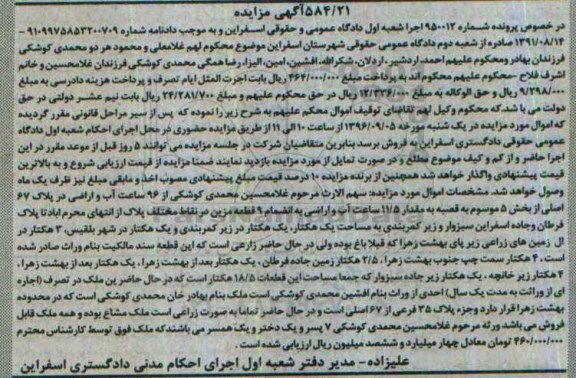 ۵۸۴/۲۱آگهی مزایده
در خصوص پرونده شماره ۹۵۰۰۱۲ اجرا شعبه اول دادگاه عمومی و حقوقی اسفراین و به موجب دادنامه شماره ۹۱۰۹۹۷۵۸۵۲۲۰۰۷۰۹ -
۱۳۹۱/۰۸/۱۴ صادره از شعبه دوم دادگاه عمومی حقوقی شهرستان اسفراین موضوع محکوم لهم غلامعلی و محمود هر دو محمدی کوشکی
فرزندان بهادر ومحکوم علیهم احمد، اردشیر، اردلان، شکرالله، افشین، امین، الیزا، رضا همگی محمدی کوشکی فرزندان غلامحسین و خانم
اشرف فلاح -محکوم علیهم محکوم اند به پرداخت مبلغ ۴۶۴/۰۰۰/۰۰۰ ریال بابت اجرت المثل ایام تصرف و پرداخت هزینه دادرسی به مبلغ
۹/۲۹۸/۰۰۰ ریال و حق الوکاله به مبلغ ۱۲/۳۳۶/۰۰۰ ریال در حق محکوم علیهم و مبلغ ۲۴/۲۸۱/۷۰۰ ریال بابت نیم عشر دولتی در حق
دولت می با شد،که محکوم وکیل لهم تقاضای توقیف اموال محکم علیهم به شرح زیر را نموده که پس از سیر مراحل قانونی مقرر گردیده
که اموال مورد مزایده در یک شنبه مورخه ۱۳۹۶/۰۹/۰۵ از ساعت ۱۰ الی ۱۱ از طریق مزایده حضوری در محل اجرای احکام شعبه اول دادگاه
عمومی حقوقی دادگستری اسفراین به فروش برسد بنابرین متقاضیان شرکت در جلسه مزایده می توانند ۵ روز قبل از موعد مقرر در این
اجرا حاضر و از کم و کیف موضوع مطلع و در صورت تمایل از مورد مزایده بازدید نمایند ضمنا مزایده از قیمت ارزیابی شروع و به بالاترین
قیمت پیشنهادی واگذار خواهد شد همچنین از برنده مزایده ۱۰ درصد قیمت مبلغ پیشنهادی مصوب اخذ و مابقی مبلغ نیز ظرف یک ماه
وصول خواهد شد. مشخصات اموال مورد مزایده: سهم الارث مرحوم غلامحسین محمدی کوشکی از ۹۶ ساعت آب و اراضی در پلاک ۶۷
اصلی از بخش ۵ موسوم به قصبه به مقدار ۱۷/۵ ساعت آب و اراضی به انضمام ۹ قطعه زمین در نقاط مختلف پلاک از انتهای محرم اباد تا پلاک
فرطان وجاده اسفراین سبزوار و زیر کمربندی به مساحت یک هکتار، یک هکتار در زیر کمربندی و یک هکتار در شهر بلقیس، ۳ هکتار در
ال زمین های زراعی زیر پای بهشت زهرا که قبلا باغ بوده ولی در حال حاضر زارعی است که این قطعه سند مالکیت بنام وراث صادر شده
است، ۴ هکتار سمت چپ جنوب بهشت زهرا ، ۲/۵ هکتار زمین جاده فرطان ، یک هکتار بعد از بهشت زهرا ، یک هکتار بعد از بهشت زهرا ،
۴ هکتار زیر خانچه ، یک هکتار زیر جاده سبزوار که جمعا مساحت این قطعات ۱۸/۵ هکتار است که در حال حاضر ین ملک در تصرف (اجاره
ای از وراثت به مدت یک سال) احدی از وراث بنام افشین محمدی کوشکی است ملک بنام بهادر خان محمدی کوشکی است که در محدوده
بهشت زهرا قرار دارد وجزء پلاک ۳۵ فرعی از ۶۷ اصلی است و در حال حاضر تماما به صورت زراعی است ملک مشاع بوده و همه ملک قابل
فروش می باشد ورثه مرحوم غلامحسین محمدی کوشکی ۷ پسر و یک دختر و یک همسر می باشندکه ملک فوق توسط کارشناس محترم
۴۶۰/۰۰۰/۰۰۰ تومان معادل چهار میلیارد و ششصد میلیون ریال ارزیابی شده است .
علیزاده- مدیر دفتر شعبه اول اجرای احکام مدنی دادگستری اسفراین